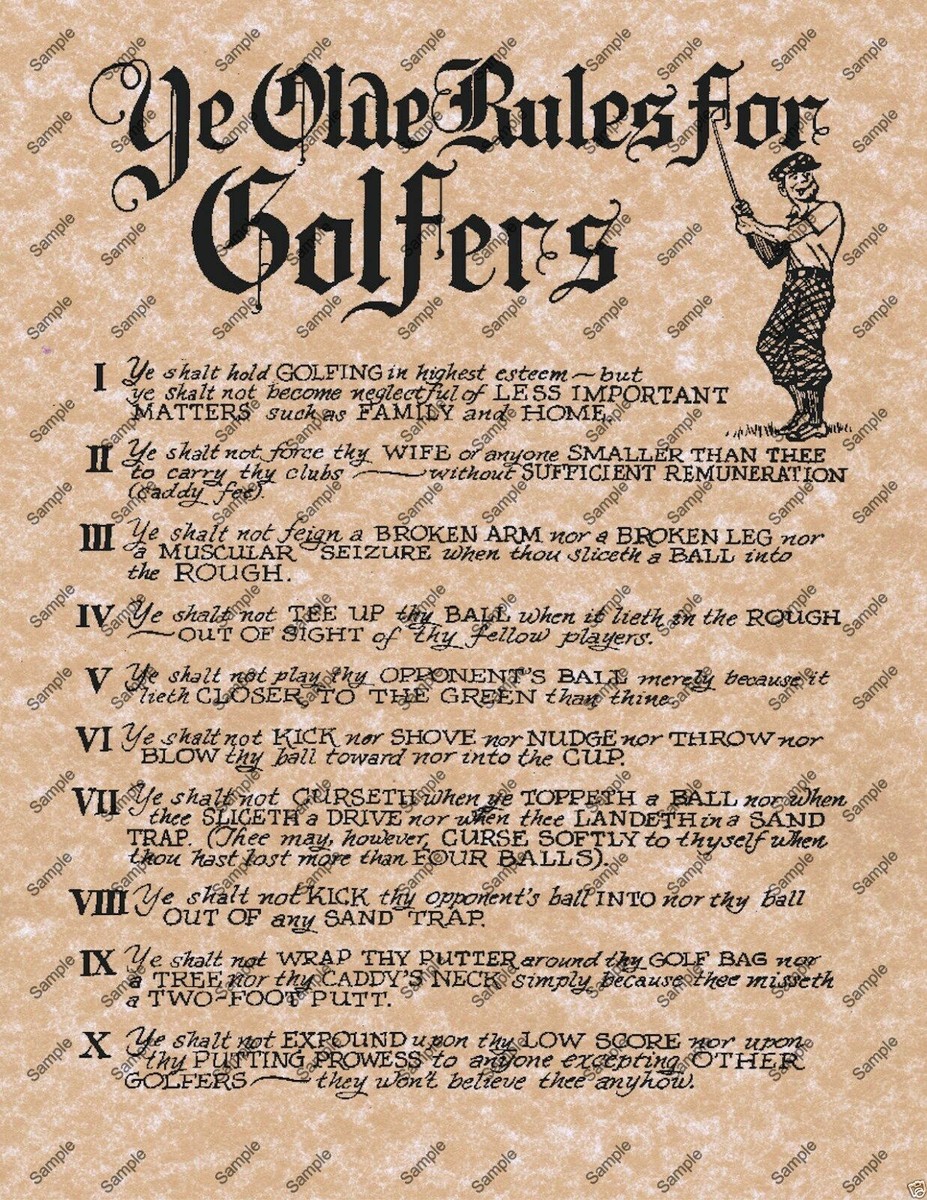 Ye Olde Rules for
Golfers
I Ye shalt hold GOLFING in highest esteem ~ but
ye shalt not become neglectful of LESS IMPORTANT
MATTERS such as FAMILY and HOME.
II Ye shalt not force thy WIFE or anyone SMALLER THAN THEE
to carry thy clubs ~ without SUFFICIENT REMUNERATION
(caddy fee).
III Ye shalt not feign a BROKEN ARM nor a BROKEN LEG nor
a MUSCULAR SEIZURE when thou sliceth a BALL into
the ROUGH.
IV Ye shalt not TEE UP thy BALL when it lieth in the ROUGH
~ OUT OF SIGHT of thy fellow players.
V Ye shalt not play thy OPPONENT'S BALL merely because it
lieth CLOSER TO THE GREEN than thine.
VI Ye shalt not KICK nor SHOVE nor NUDGE nor THROW nor
BLOW thy ball toward nor into the CUP.
VII Ye shalt not CURSETH when ye TOPPETH a BALL nor when
thee SLICETH a DRIVE nor when thee LANDETH in a SAND
TRAP. (Thee may, however, CURSE SOFTLY to thyself when
thou hast lost more than FOUR BALLS).
VIII Ye shalt not KICK thy opponent's ball INTO nor thy ball
OUT OF any SAND TRAP.
IX Ye shalt not WRAP THY PUTTER around thy GOLF BAG nor
a TREE nor thy CADDY'S NECK simply because thee misseth
a TWO-FOOT PUTT.
X Ye shalt not EXPOUND upon thy LOW SCORE nor upon
thy PUTTING PROWESS to anyone excepting OTHER
GOLFERS ~ they won't believe thee anyhow.
Sample